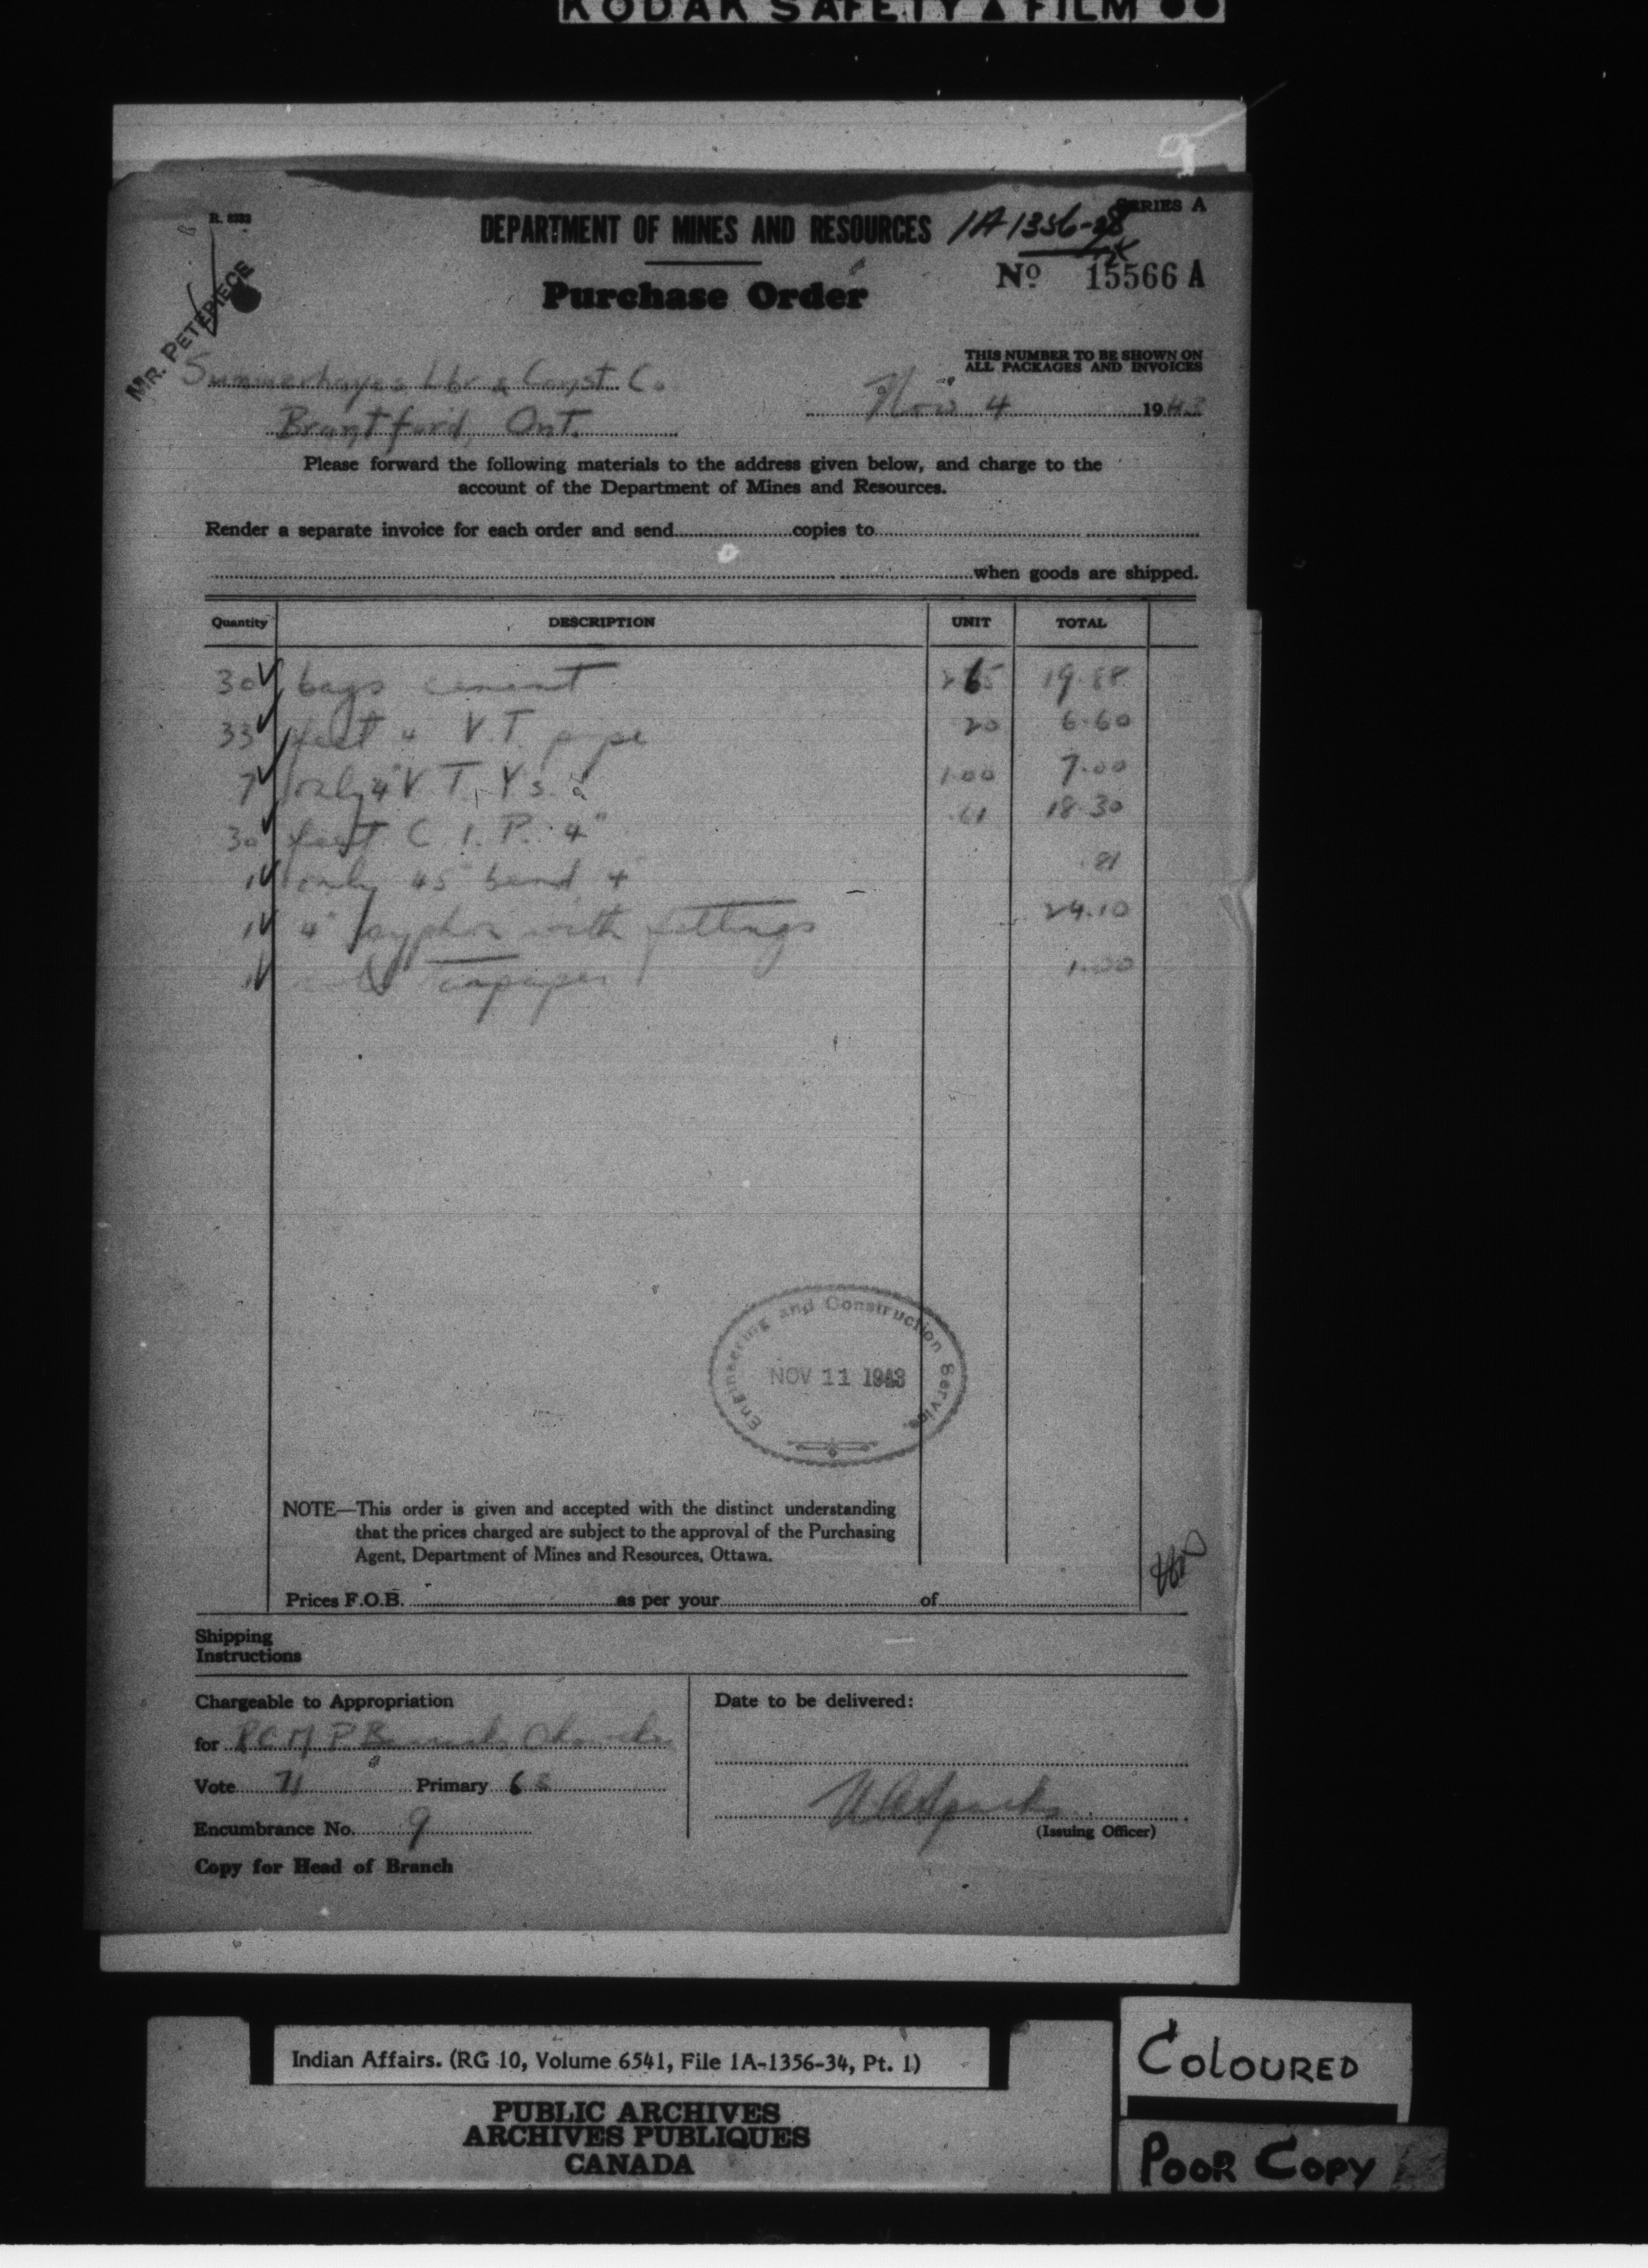 KODAK SAFETY ▲ FILM ●●
R. 8233
SERIES A
DEPARTMENT OF MINES AND RESOURCES
1A1356-28
Purchase Order
No 15566 A
MR. PETEPIECE
THIS NUMBER TO BE SHOWN ON
ALL PACKAGES AND INVOICES
Summerhayes Lbr & Const Co
Nov 4 1943
Brantford, Ont.
Please forward the following materials to the address given below, and charge to the
account of the Department of Mines and Resources.
Render a separate invoice for each order and send copies to
when goods are shipped.
Quantity DESCRIPTION UNIT TOTAL
30 bags cement 19.88
33 feet 4 V.T. pipe 20 6.60
7 only 4" V.T. Y's 1.00 7.00
30 feet C.I.P. 4" .61 18.30
1 only 45 bend 4 81
1 4" syphon with fittings 24.10
1 roll Tarpaper 1.00
Engineering and Construction Service
NOV 11 1943
NOTE—This order is given and accepted with the distinct understanding
that the prices charged are subject to the approval of the Purchasing
Agent, Department of Mines and Resources, Ottawa.
Prices F.O.B. as per your of
Shipping
Instructions
Chargeable to Appropriation
Date to be delivered:
for RCMP
Vote 71 Primary 68
Encumbrance No. 9
(Issuing Officer)
Copy for Head of Branch
Indian Affairs. (RG 10, Volume 6541, File 1A-1356-34, Pt. 1)
PUBLIC ARCHIVES
ARCHIVES PUBLIQUES
CANADA
COLOURED
POOR COPY